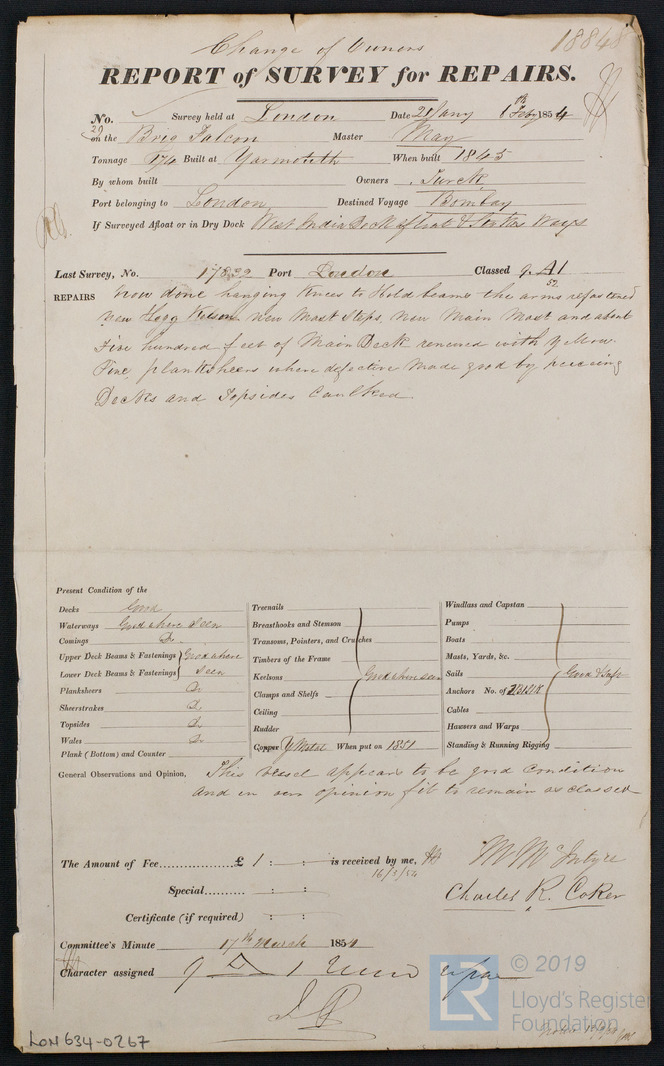 Change of Owners
18848
REPORT of SURVEY for REPAIRS.
No. Survey held at London Date 20 Jany 6th Feby 1854
on the Brig Falcon Master May
Tonnage 174 Built at Yarmouth When built 1845
By whom built Owners Turck
Port belonging to London Destined Voyage Bombay
If Surveyed Afloat or in Dry Dock West India Dock afloat & Ways
Last Survey, No. 17822 Port London Classed 9 A1
52
REPAIRS Now done hanging knees to Hold beams the arms refastened
New Kelson New Mast Steps, New Main Mast and about
Five hundred feet of Main Deck renewed with Yellow
Pine, planksheers where defective made good by peiceing
Decks and Topsides Caulked
Present Condition of the
Decks Good
Waterways Good where seen
Comings Do
Upper Deck Beams & Fastenings Good where
Lower Deck Beams & Fastenings seen
Planksheers Do
Sheerstrakes Do
Topsides Do
Wales Do
Plank (Bottom) and Counter
Treenails
Breasthooks and Stemson
Transoms, Pointers, and Crutches
Timbers of the Frame
Keelsons Good where seen
Clamps and Shelfs
Ceiling
Rudder
Copper Y Metal When put on 1851
Windlass and Capstan
Pumps
Boats
Masts, Yards, &c.
Sails Good & Suff
Anchors No. of
Cables
Hawsers and Warps
Standing & Running Rigging
General Observations and Opinion, This vessel appears to be good condition
and in our opinion fit to remain as classed
The Amount of Fee £ 1 : : is received by me,
16/3/54
M McIntyre
Special : :
Charles R. Coker
Certificate (if required) : :
Committee's Minute 17th March 1854
Character assigned 9 A 1
LON634-0267
LR
© 2019
Lloyd's Register
Foundation